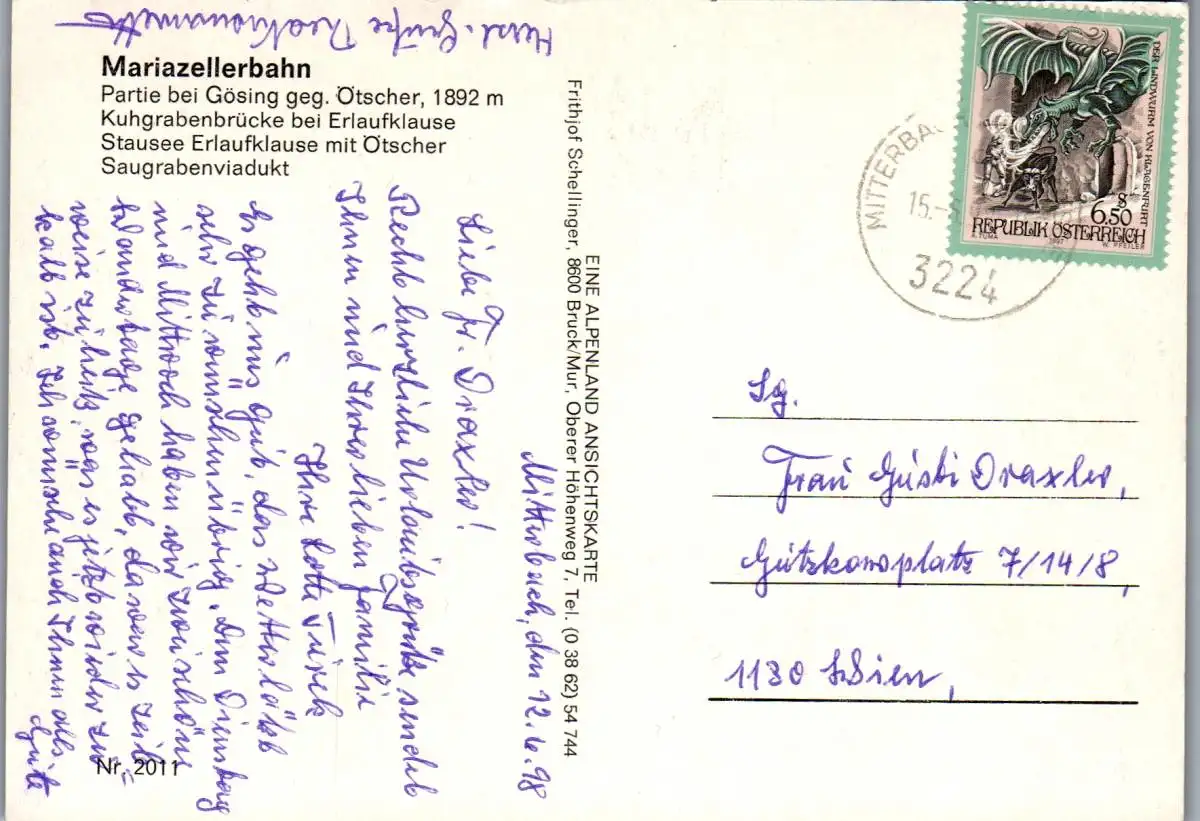 Mariazellerbahn
Partie bei Gösing geg. Ötscher, 1892 m
Kuhgrabenbrücke bei Erlaufklause
Stausee Erlaufklause mit Ötscher
Saugrabenviadukt
Mitterbach, den 12.6.98
Liebe Fr. Draxler!
Recht herzliche Urlaubsgrüße sendet
Ihnen und Ihrer lieben Familie
Ihre Lotte Turek
Es geht uns gut, das Wetter läßt
sehr zu wünschen übrig. Am Dienstag
und Mittwoch haben wir zwei schöne
Wandertage gehabt, da war es teil-
weise zu heiß, was es jetzt wieder zu
kalt ist. Ich wünsche auch Ihnen alles
Gute
Herzl. Grüße
EINE ALPENLAND ANSICHTSKARTE
Frithjof Schellinger, 8600 Bruck/Mur, Oberer Höhenweg 7, Tel. (0 38 62) 54 744
Nr. 2011
DER LINDWURM VON KLAGENFURT
S
6,50
REPUBLIK ÖSTERREICH
A. TUMA 1997 W. PFEILER
MITTERBA
15.-
3224
Sg.
Frau Gusti Draxler,
Gutzkowplatz 7/14/8,
1130 Wien,